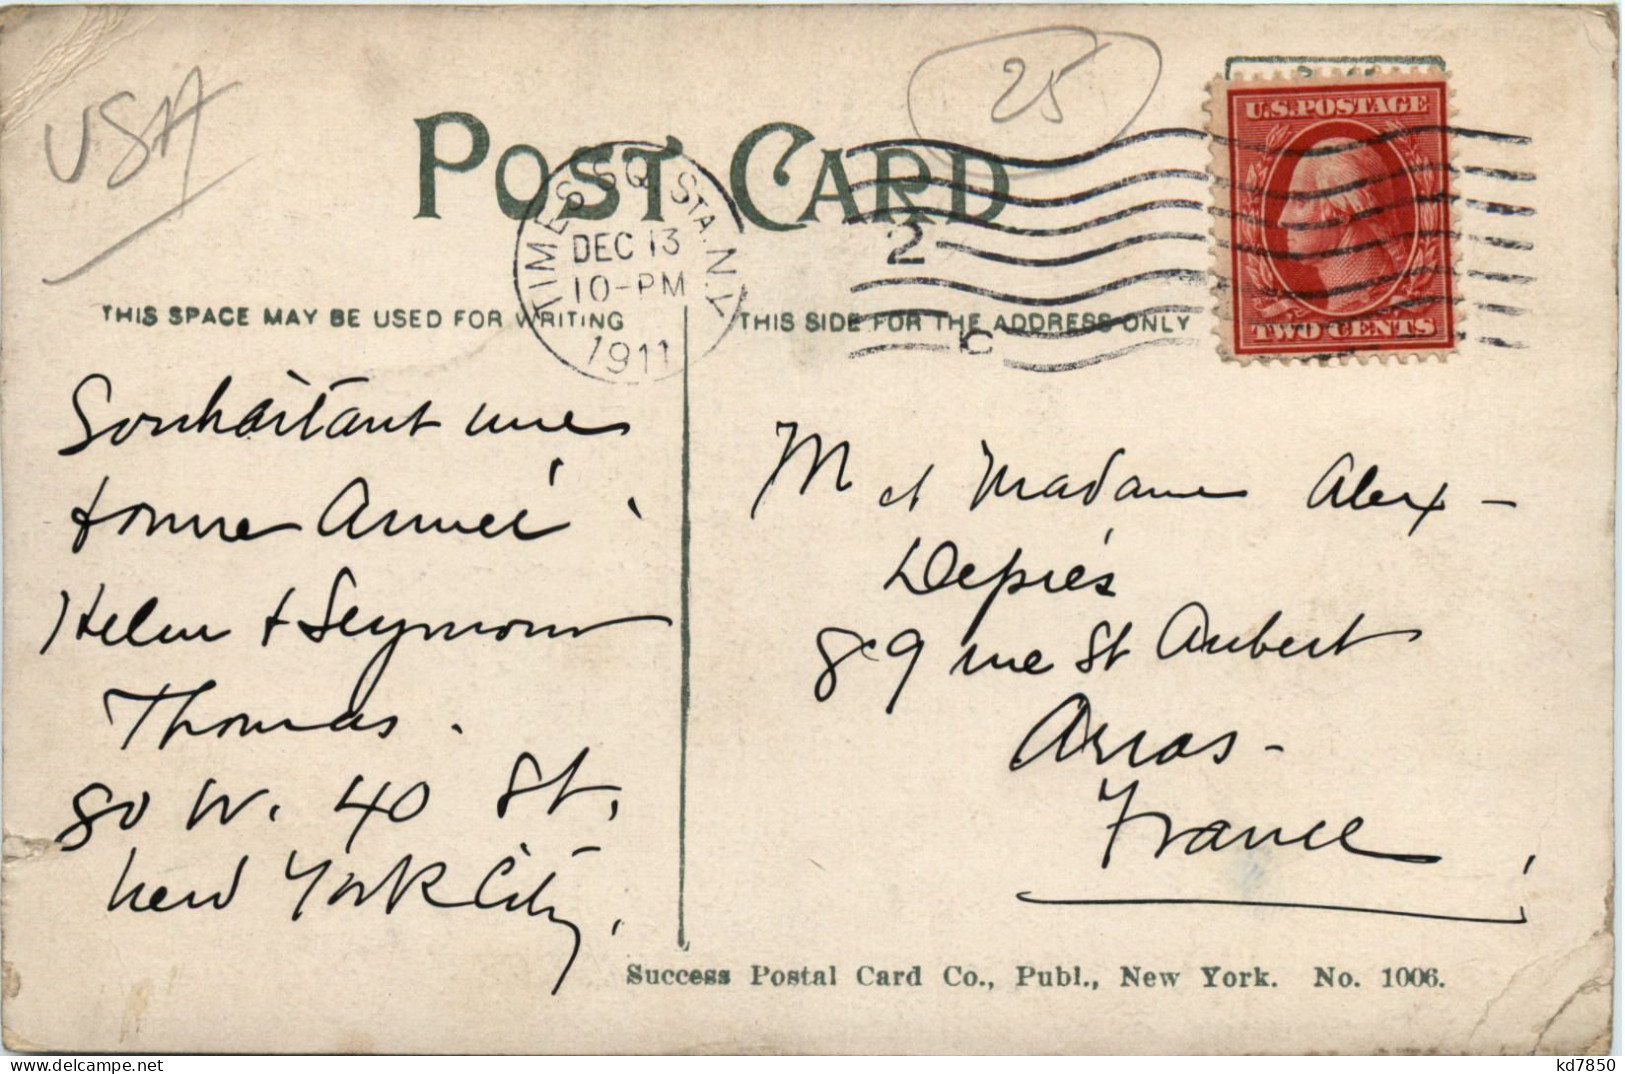 USA
25
POST CARD
TIMES SQ. STA. N.Y.
DEC 13
10-PM
1911
2
C
U.S. POSTAGE
TWO CENTS
THIS SPACE MAY BE USED FOR WRITING
THIS SIDE FOR THE ADDRESS ONLY
Souhaitant une
bonne Année.
Helen & Seymour
Thomas.
80 W. 40 St.
New York City.
M et Madame Alex-
Depiés
89 rue St Aubert
Arras-
France
Success Postal Card Co., Publ., New York. No. 1006.
kd7850